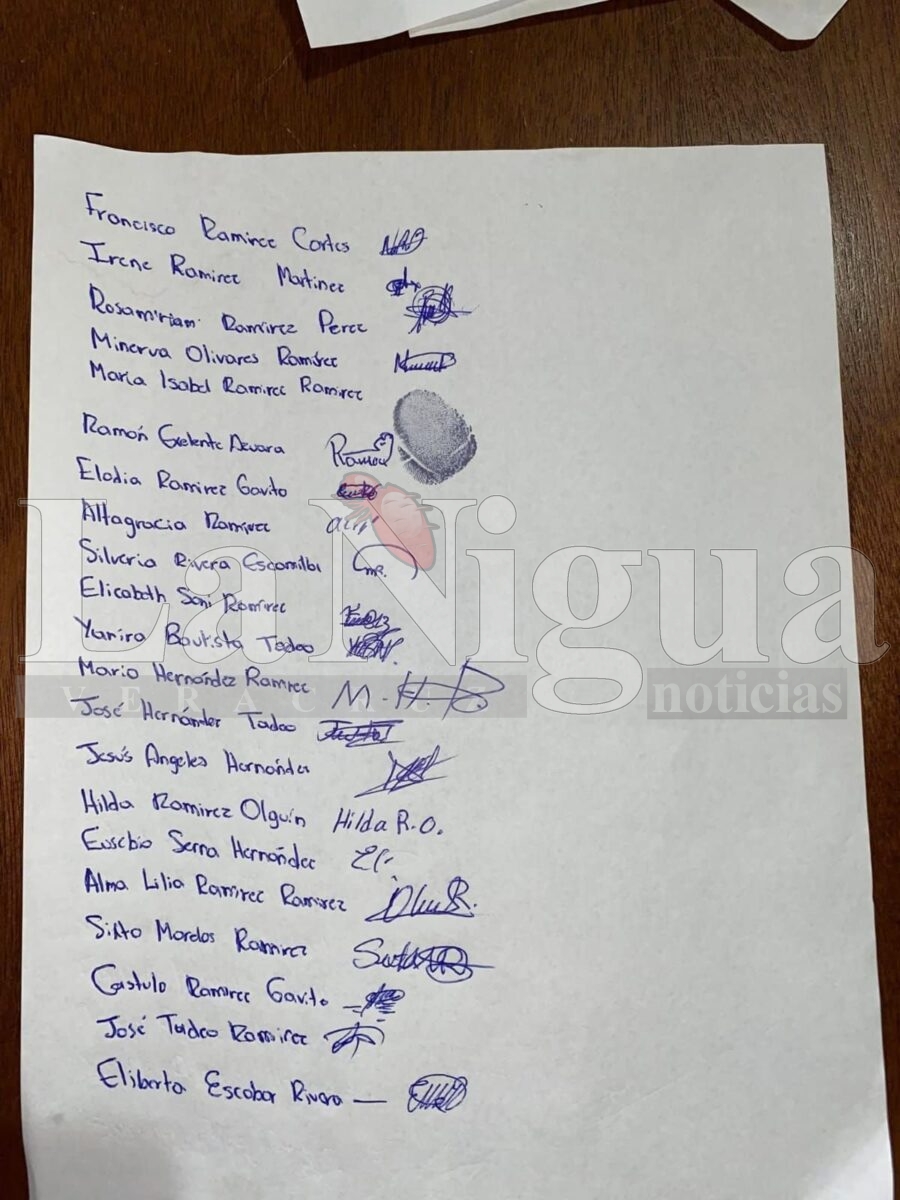 Francisco Ramirez Cortes
Irene Ramirez Martinez
Rosamiriam Ramirez Perez
Minerva Olivares Ramirez
María Isabel Ramirez Ramirez
Ramón Ramon
Elodia Ramirez Gavito
Altagracia Ramirez
Silveria Rivera Escamilla
Elizabeth Soni Ramirez
Yamira Bautista Tadeo
Mario Hernández Ramirez M. H.
José Hernández Tadeo
Jesús Angeles Hernández
Hilda Ramirez Olguín Hilda R.O.
Eusebio Serna Hernández
Alma Lilia Ramirez Ramirez
Sixto Morelos Ramirez
Castulo Ramirez Gavito
José Tadeo Ramirez
Eliberta Escobar Rivera
LaNigua
VERACRUZ noticias